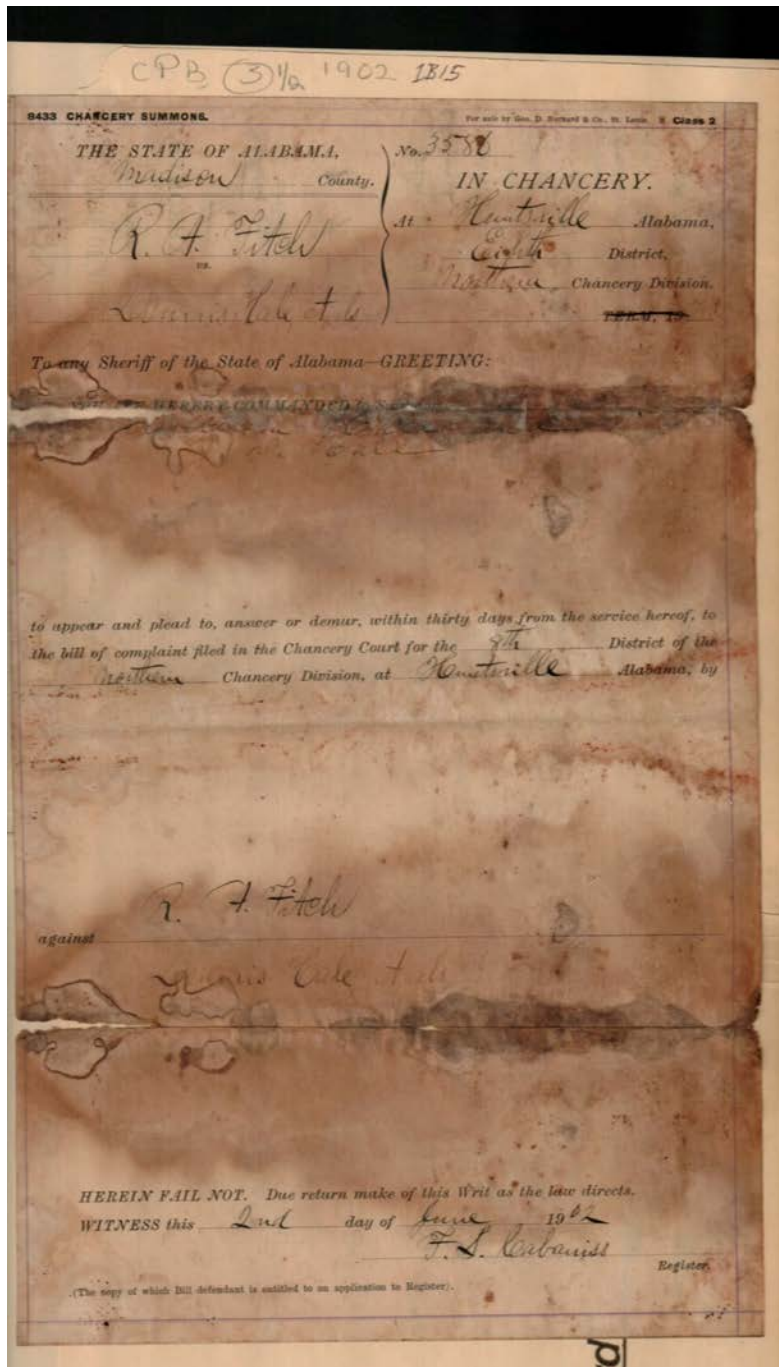 CPB 3 1/2 1902 1B15
8433 CHANCERY SUMMONS.
For sale by Geo. D. Barnard & Co., St. Louis. Class 2
THE STATE OF ALABAMA,
Madison County.
R. A. Fitch
vs.
Hale
No. 358
IN CHANCERY.
At Huntsville Alabama,
Eighth District,
Northern Chancery Division.
TERM, 19
To any Sheriff of the State of Alabama—GREETING:
HEREBY COMMANDED
to appear and plead to, answer or demur, within thirty days from the service hereof, to
the bill of complaint filed in the Chancery Court for the 8th District of the
Northern Chancery Division, at Huntsville Alabama, by
R. A. Fitch
against
HEREIN FAIL NOT. Due return make of this Writ as the law directs.
WITNESS this 2nd day of June 1902
F. S. Cabaniss
Register.
(The copy of which Bill defendant is entitled to on application to Register).